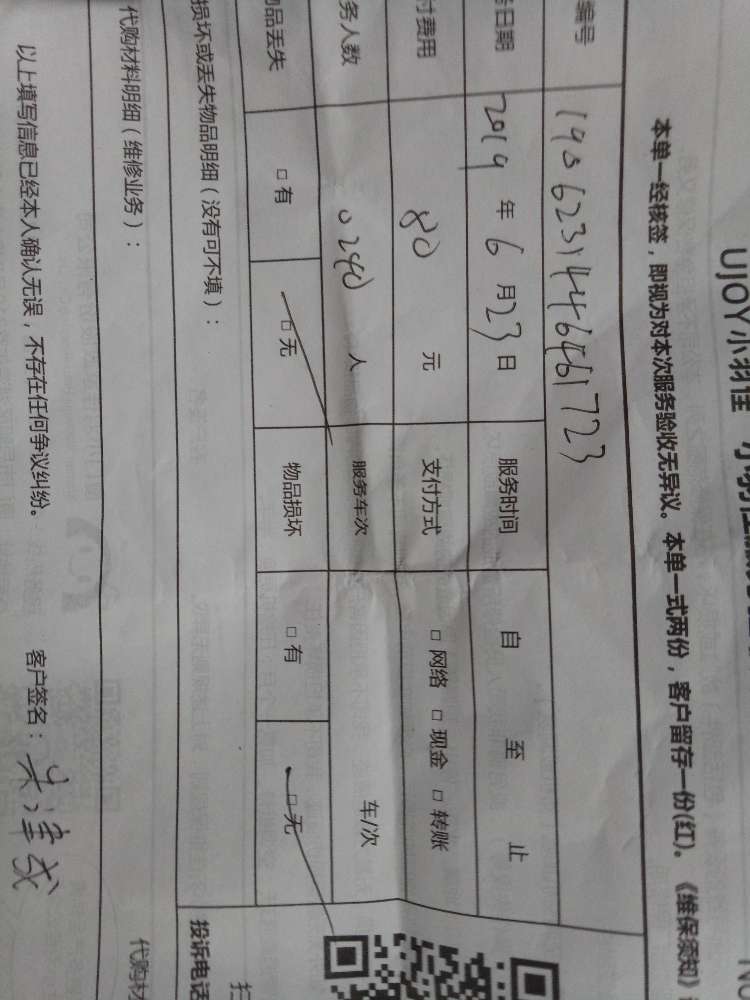 UJOY小羽佳
本单一经核签，即视为对本次服务验收无异议。本单一式两份，客户留存一份(红)。《维保须知》
编号 1906231446461723
日期 2019 年 6 月 23 日 服务时间 自 至 止
付费用 80 元 支付方式 □ 网络 □ 现金 □ 转账
务人数 人 服务车次 车/次
品丢失 □ 有 □ 无 物品损坏 □ 有 □ 无
损坏或丢失物品明细（没有可不填）：
投诉电话
代购材料明细（维修业务）：
代购材
以上填写信息已经本人确认无误，不存在任何争议纠纷。 客户签名：